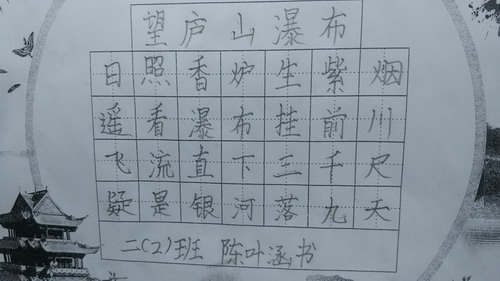 望庐山瀑布
日照香炉生紫烟
遥看瀑布挂前川
飞流直下三千尺
疑是银河落九天
二(2)班 陈叶涵书